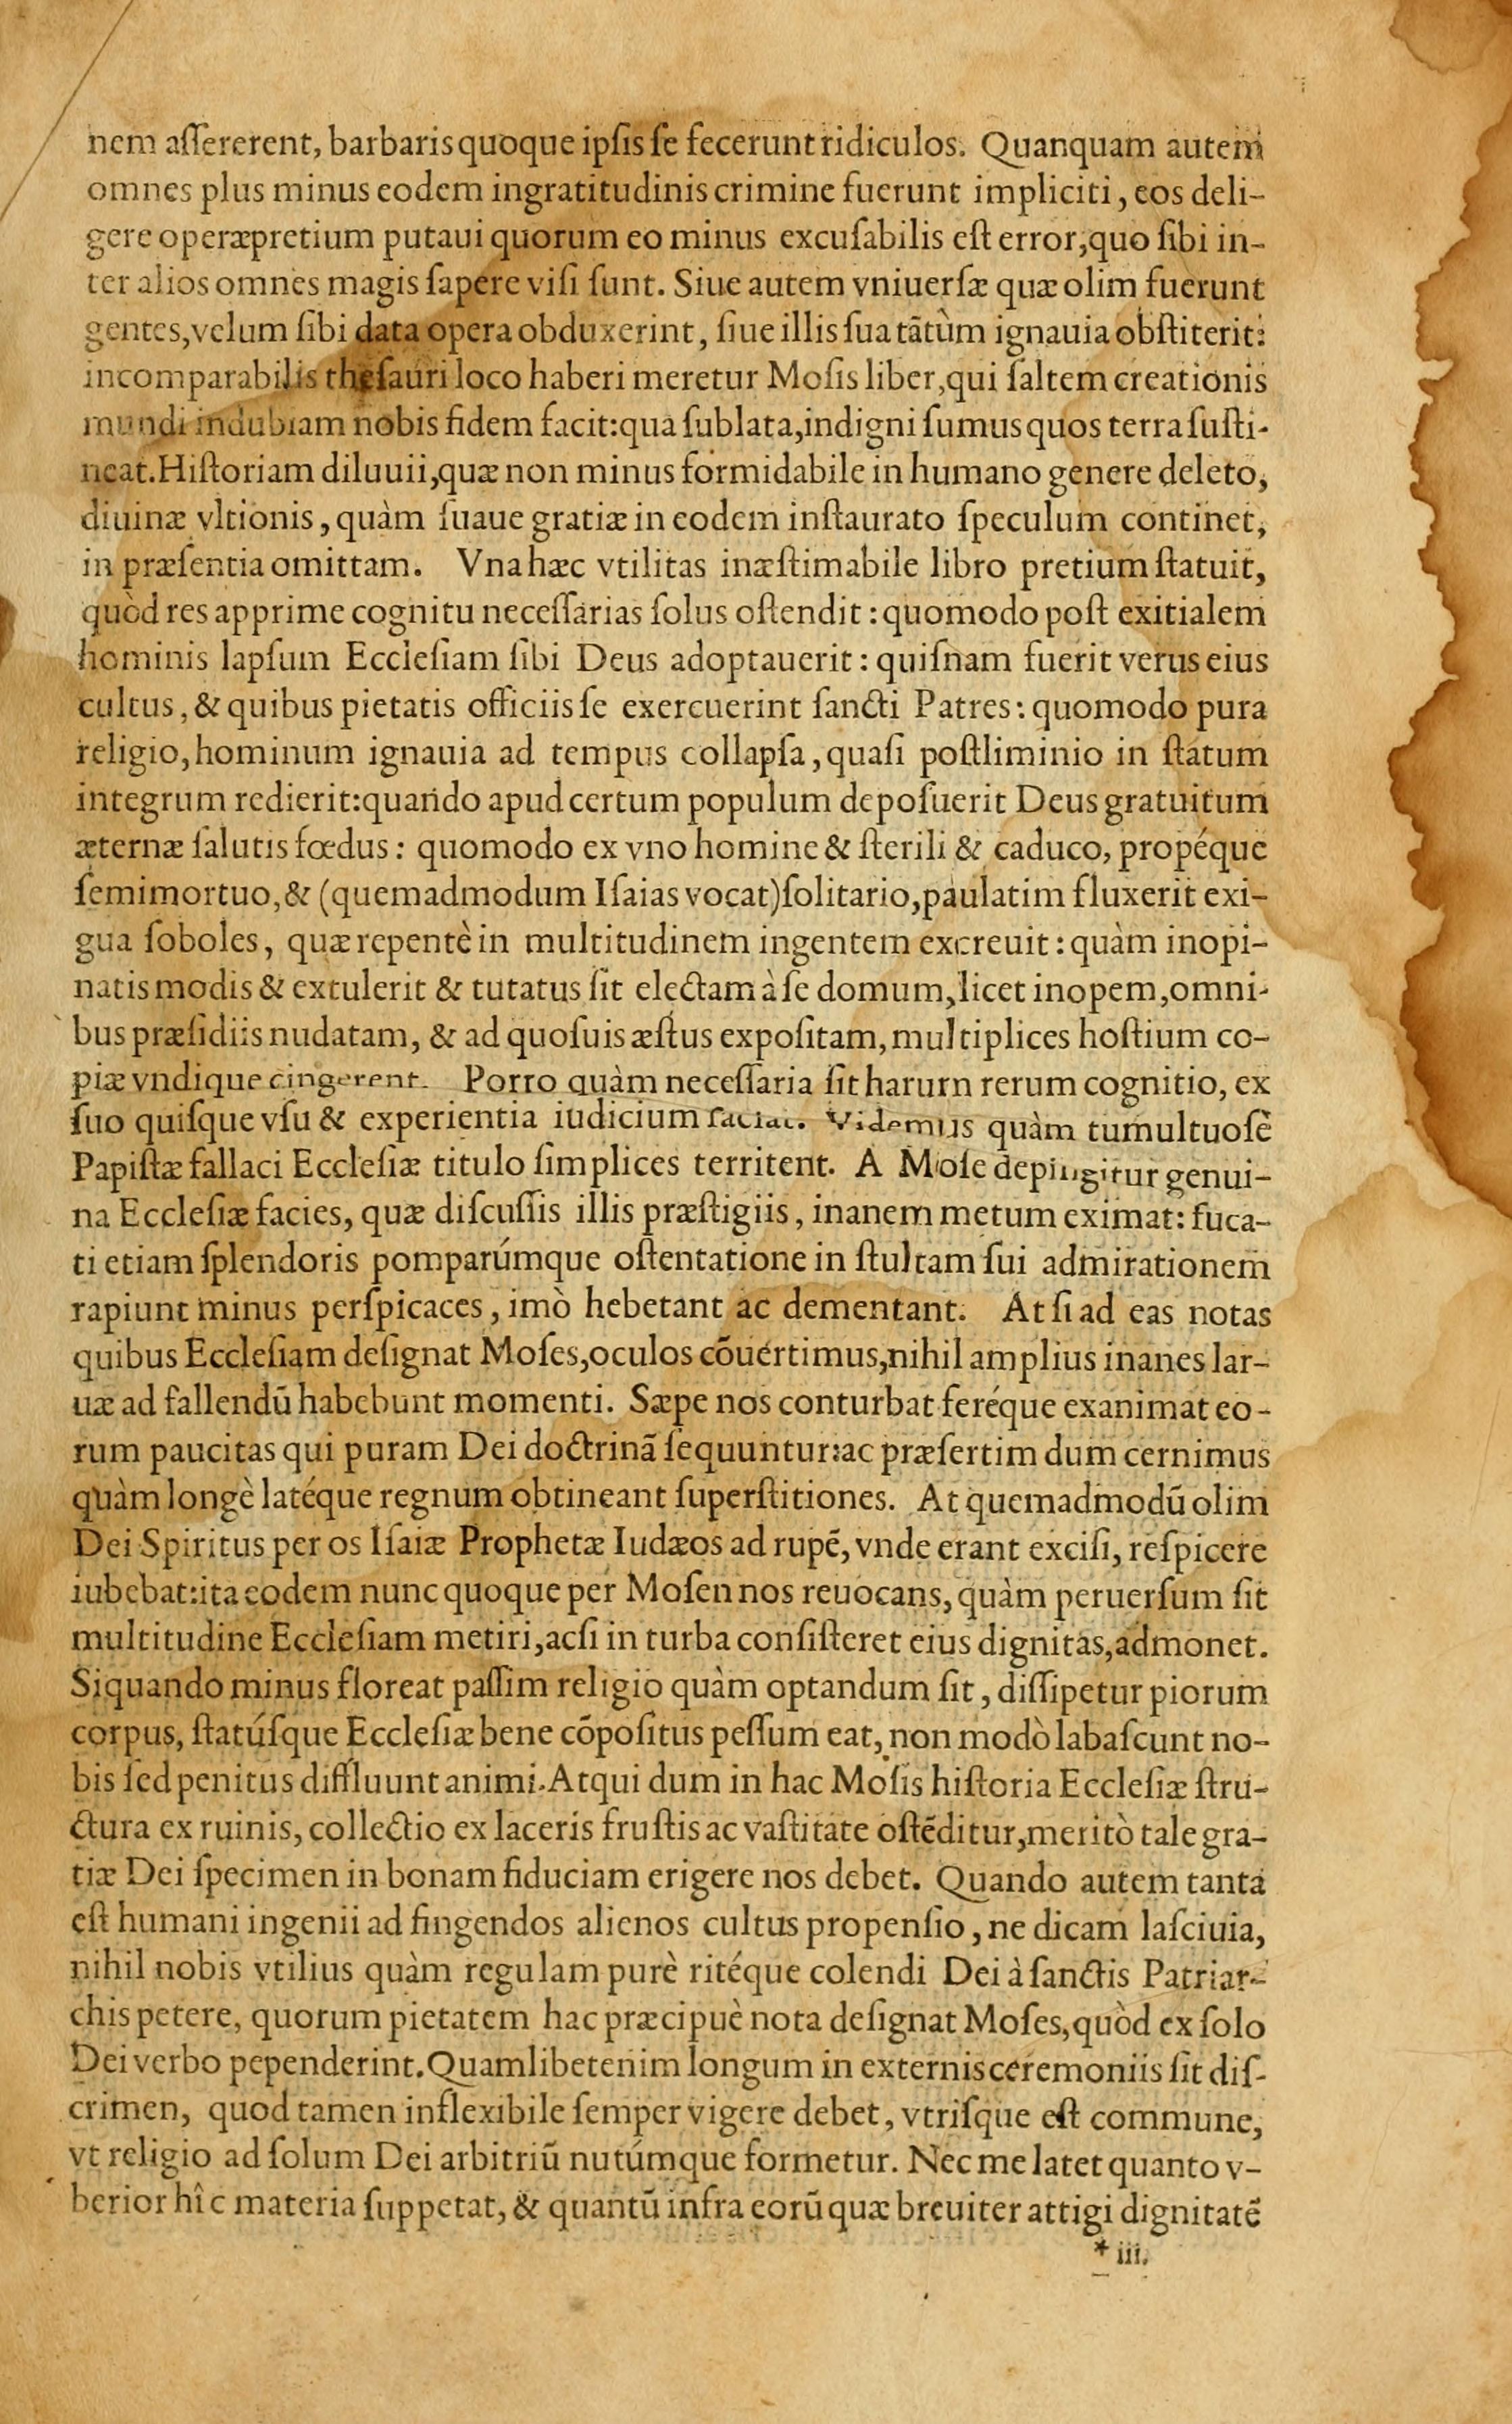 nem aſſererent, barbaris quoque ipſis ſe fecerunt ridiculos. Quanquam autem
omnes plus minus eodem ingratitudinis crimine fuerunt impliciti, eos deli-
gere operæpretium putaui quorum eo minus excuſabilis eſt error, quo ſibi in-
ter alios omnes magis ſapere viſi ſunt. Siue autem vniuerſæ quæ olim fuerunt
gentes, velum ſibi data opera obduxerint, ſiue illis ſua tãtùm ignauia obſtiterit:
incomparabilis theſauri loco haberi meretur Moſis liber, qui ſaltem creationis
mundi indubiam nobis fidem facit: qua ſublata, indigni ſumus quos terra ſuſti-
neat. Hiſtoriam diluuii, quæ non minus formidabile in humano genere deleto,
diuinæ vltionis, quàm ſuaue gratiæ in eodem inſtaurato ſpeculum continet,
in præſentia omittam. Vna hæc vtilitas inæſtimabile libro pretium ſtatuit,
quòd res apprime cognitu neceſſarias ſolus oſtendit: quomodo poſt exitialem
hominis lapſum Eccleſiam ſibi Deus adoptauerit: quiſnam fuerit verus eius
cultus, & quibus pietatis officiis ſe exercuerint ſancti Patres: quomodo pura
religio, hominum ignauia ad tempus collapſa, quaſi poſtliminio in ſtatum
integrum redierit: quando apud certum populum depoſuerit Deus gratuitum
æternæ ſalutis fœdus: quomodo ex vno homine & ſterili & caduco, propéque
ſemimortuo, & (quemadmodum Iſaias vocat) ſolitario, paulatim fluxerit exi-
gua ſoboles, quæ repentè in multitudinem ingentem excreuit: quàm inopi-
natis modis & extulerit & tutatus ſit electam à ſe domum, licet inopem, omni-
bus præſidiis nudatam, & ad quoſuis æſtus expoſitam, multiplices hoſtium co-
piæ vndique cingerent. Porro quàm neceſſaria ſit harum rerum cognitio, ex
ſuo quiſque vſu & experientia iudicium faciat. Videmus quàm tumultuoſè
Papiſtæ fallaci Eccleſiæ titulo ſimplices territent. A Moſe depingitur genui-
na Eccleſiæ facies, quæ diſcuſſis illis præſtigiis, inanem metum eximat: fuca-
ti etiam ſplendoris pomparúmque oſtentatione in ſtultam ſui admirationem
rapiunt minus perſpicaces, imò hebetant ac dementant. At ſi ad eas notas
quibus Eccleſiam deſignat Moſes, oculos cõuertimus, nihil amplius inanes lar-
uæ ad fallendũ habebunt momenti. Sæpe nos conturbat feréque exanimat eo-
rum paucitas qui puram Dei doctrinã ſequuntur: ac præſertim dum cernimus
quàm longè latéque regnum obtineant ſuperſtitiones. At quemadmodũ olim
Dei Spiritus per os Iſaiæ Prophetæ Iudæos ad rupẽ, vnde erant exciſi, reſpicere
iubebat: ita eodem nunc quoque per Moſen nos reuocans, quàm peruerſum ſit
multitudine Eccleſiam metiri, acſi in turba conſiſteret eius dignitas, admonet.
Siquando minus floreat paſſim religio quàm optandum ſit, diſſipetur piorum
corpus, ſtatúſque Eccleſiæ bene cõpoſitus peſſum eat, non modò labaſcunt no-
bis ſed penitus diffluunt animi. Atqui dum in hac Moſis hiſtoria Eccleſiæ ſtru-
ctura ex ruinis, collectio ex laceris fruſtis ac vaſtitate oſtẽditur, meritò tale gra-
tiæ Dei ſpecimen in bonam fiduciam erigere nos debet. Quando autem tanta
eſt humani ingenii ad fingendos alienos cultus propenſio, ne dicam laſciuia,
nihil nobis vtilius quàm regulam purè ritéque colendi Dei à ſanctis Patriar-
chis petere, quorum pietatem hac præcipuè nota deſignat Moſes, quòd ex ſolo
Dei verbo pependerint. Quamlibet enim longum in externis ceremoniis ſit diſ-
crimen, quod tamen inflexibile ſemper vigere debet, vtriſque eſt commune,
vt religio ad ſolum Dei arbitriũ nutúmque formetur. Nec me latet quanto v-
berior hîc materia ſuppetat, & quantũ infra eorũ quæ breuiter attigi dignitatẽ
* iii.